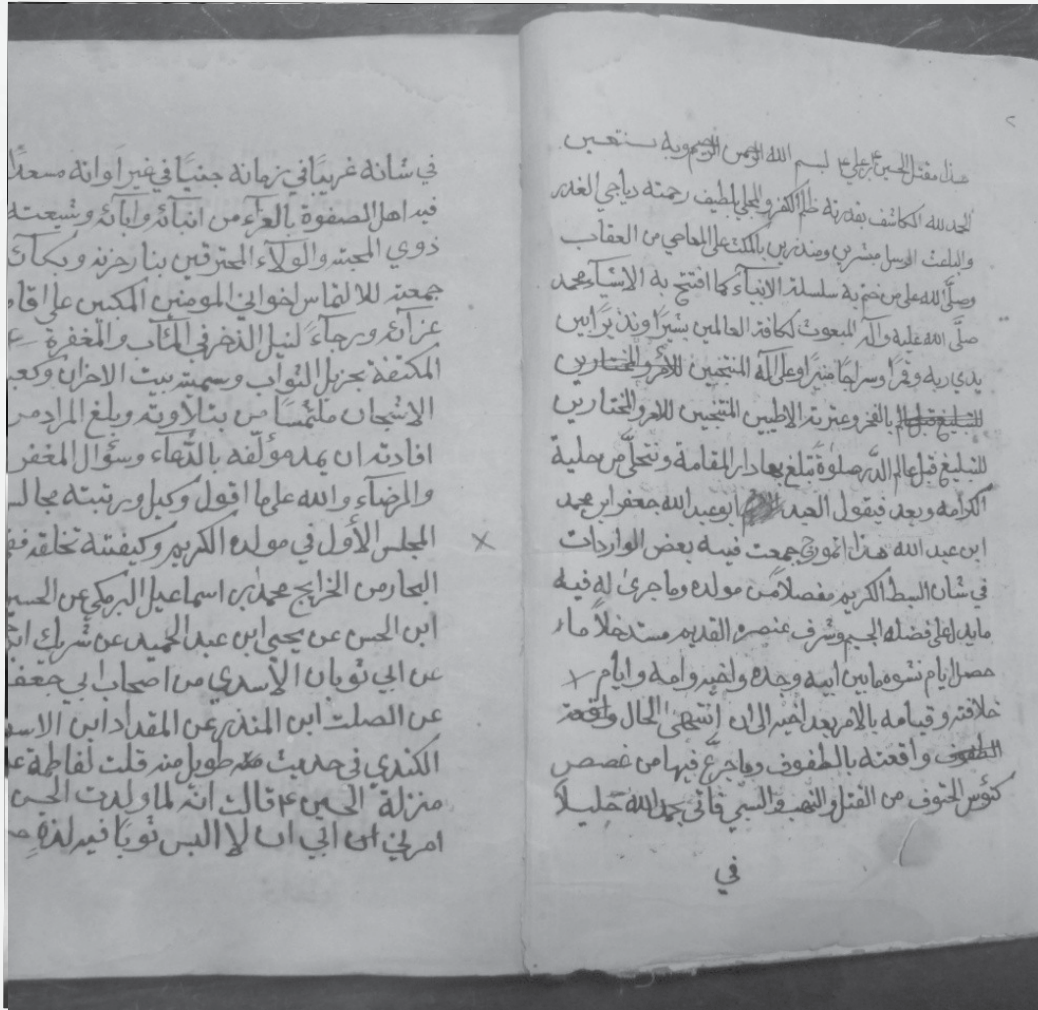 ٢
هذا مقتل الحسين ع بن علي ع بسم الله الرحمن الرحيم وبه نستعين
الحمد لله الكاشف بقدرته ظلم الكفر والمجلي بلطيف رحمته دياجي الغدر
والباعث الرسل مبشرين ومنذرين بالمكث على المعاصي من العقاب
وصلى الله على من ختم به سلسلة الانبياء كما افتتح به الاشياء محمد
صلى الله عليه وآله المبعوث لكافة العالمين بشيرا ونذيرا بين
يدي ربه وقمرا وسراجا منيرا وعلى آله المنتجبين للأمر والمختارين
للتبليغ قبل عالم بالفخر وعترته الاطيبين المنتجبين للامر والمختارين
للتبليغ قبل عالم الذر صلوة تبلغ بها دار المقامة ونتحلى من حلية
الكرامه وبعد فيقول العبد ابو عبد الله جعفر ابن محمد
ابن عبد الله هذا انموذج جمعت فيه بعض الواردات
في شان السبط الكريم مفصلا من مولده وما جرى له فيه
مايدل على فضله الجسيم وشرف عنصره القديم مستدخلا ماء
حصل ايام نشوه ما بين ابيه وجده واخيه وامه وايام
خلافته وقيامه بالامر بعد اخيه الى ان انتهى الحال واقعة
الطفوف واقعته بالطفوف وما جرع فيها من غصص
كئوس الحتوف من القتل والنهب والسبي فاتى بحمد الله جليلا
في
في شانه غريبا في زمانه جنيا في غير اوانه مسعدا
فيه اهل الصفوة بالعزاء من انبائه وابائه وشيعته
ذوي المحبته والولاء المحترقين بنار حزنه وبكائه
جمعته للالتماس اخواني المومنين المكبين على اقامة
عزائه ورجاء لنيل الذخر في المئاب والمغفرة
المكتفة بجزيل الثواب وسميته بيت الاحزان وكعبة
الاشجان ملتمسا من بتلاوته ويبلغ المراد من
افادته ان يمد مؤلفه بالدعاء وسؤال المغفرة
والرضاء والله على ما اقول وكيل ورتبته مجالس
المجلس الأول في مولده الكريم وكيفيته تخلقه ففي
البحار من الخرايج محمد بن اسماعيل البرمكي عن الحسين
ابن الحسن عن يحيى ابن عبد الحميد عن شريك ابن
عن ابي ثوبان الأسدي من اصحاب ابي جعفر
عن الصلت ابن المنذر عن المقداد ابن الاسود
الكندي في حديث طويل منه قلت لفاطمة ع
منزلة الحسين ع قالت انه لما ولدت الحسن
امرني ابي ان لا البس ثوبا فيه لذة